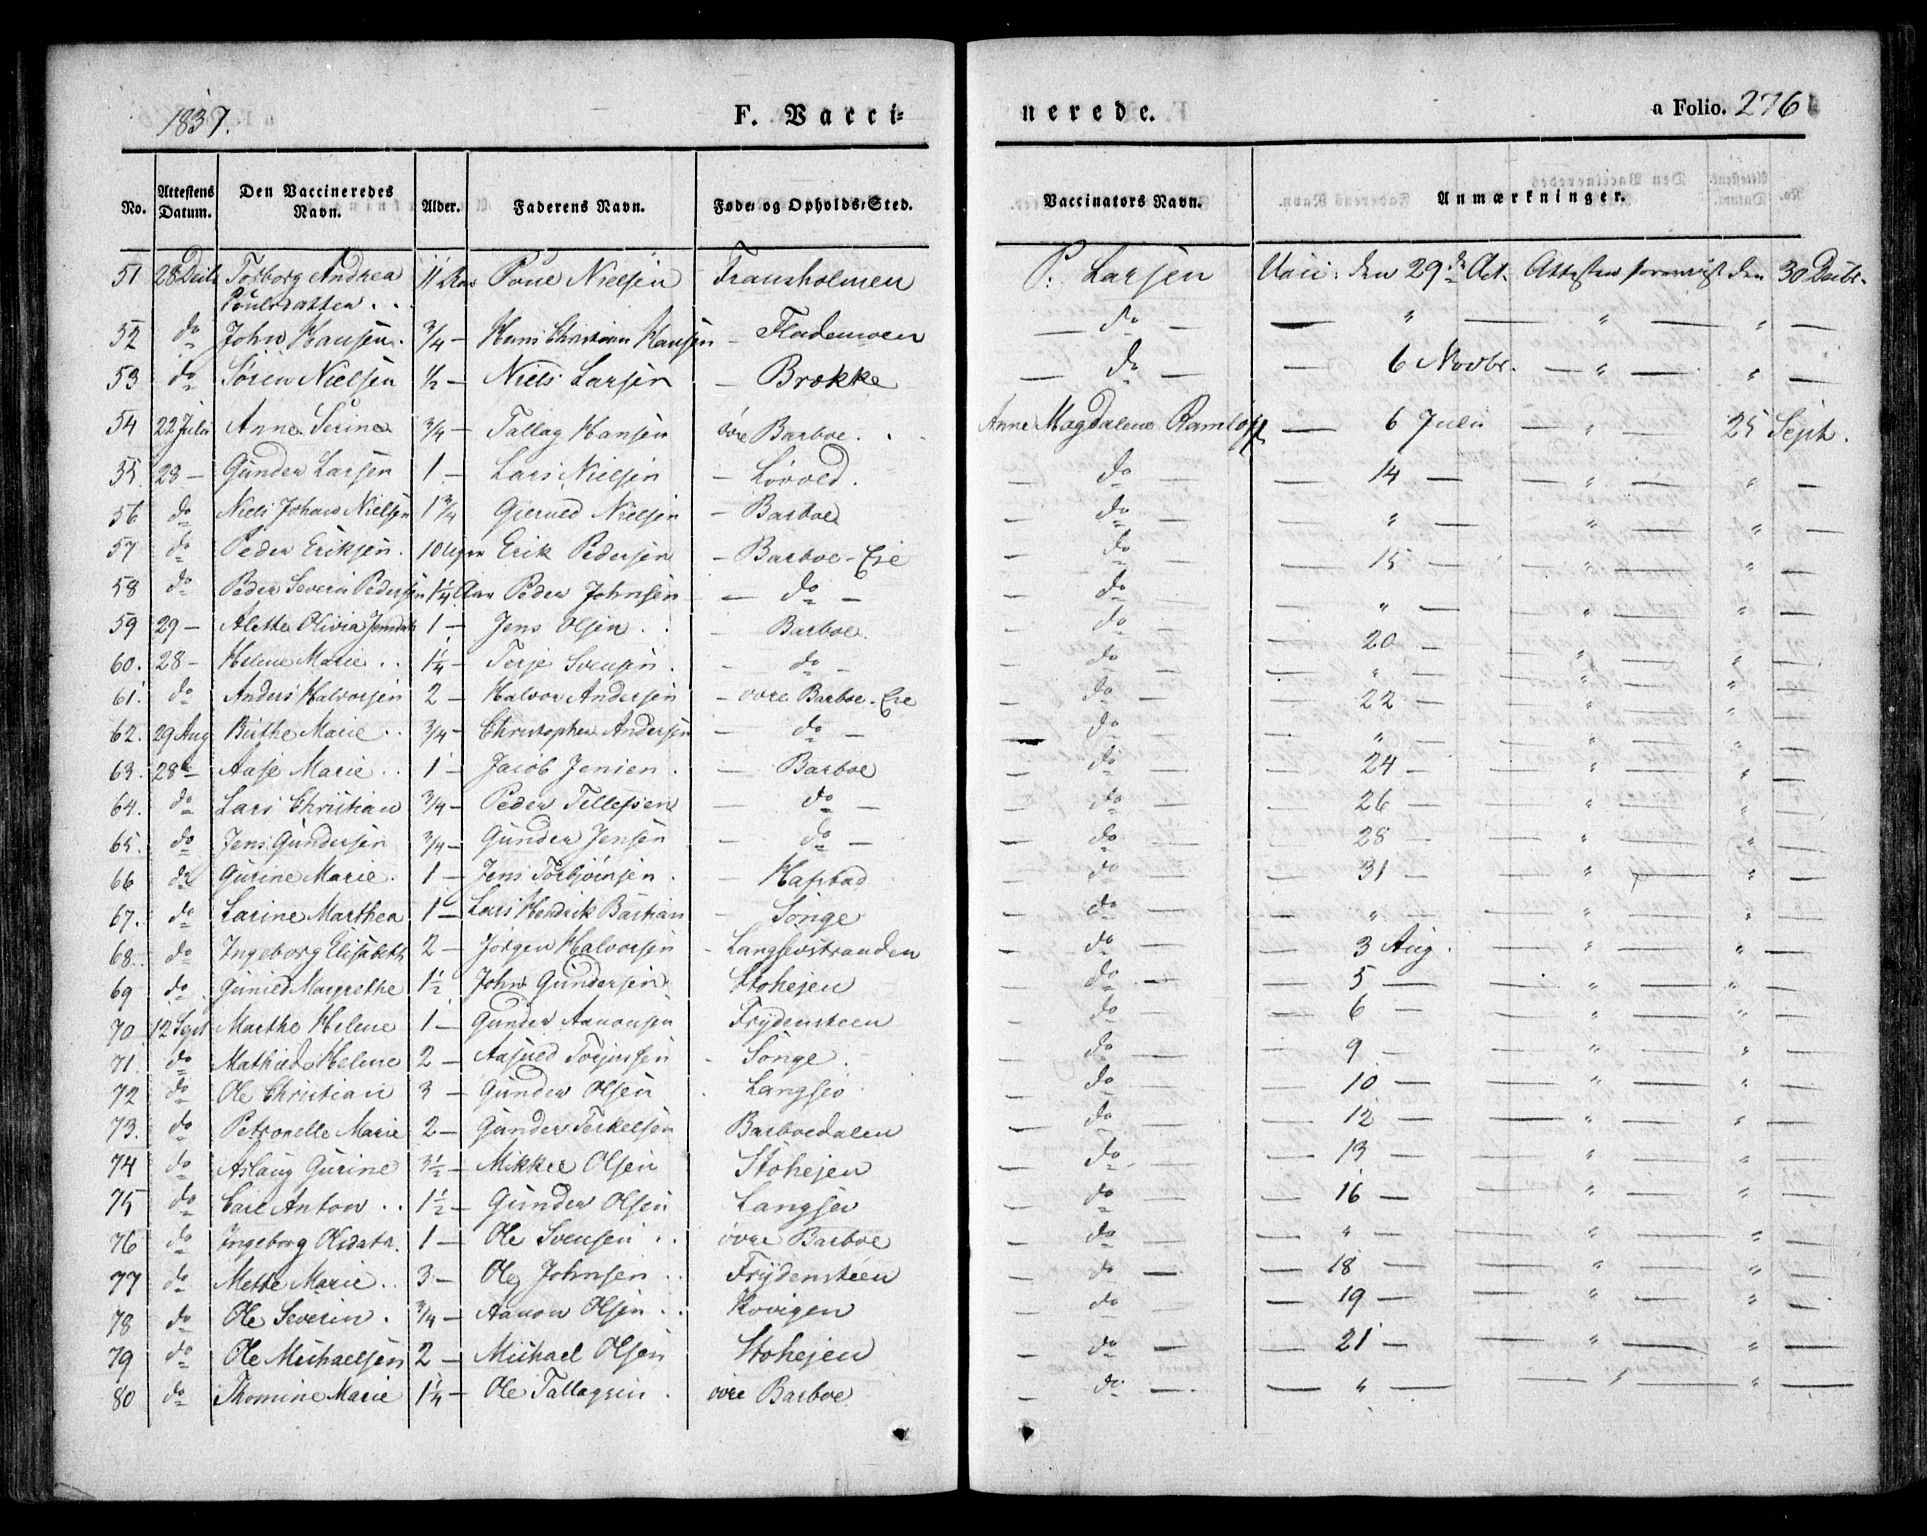 1837.
F. Vacci=
nerede.
a Folio. 276
No.
Attestens Datum.
Den Vaccineredes Navn.
Alder.
Faderens Navn.
Føde= og Opholds=Sted.
Vaccinators Navn.
Anmærkninger.
51 28 Decb Torborg Andrea 1½ Aar Poul Nielsen Fransholmen P. Larsen Vacc: den 29de Oct. Attesten forevist den 30 Decbr.
Poulsdatter . .
52 do John Hansen. 3/4 — Hans Christian Hansen — Flademoen — do — — " — " — " —
53 do Sören Nielsen 1/2 — Niels Larsen — Brække — do — 6 Novbr. — " — " —
54 22 Juli Anne Serine 3/4 — Tallag Hansen övre Barboe . . Anne Magdalene Ramløff — 6 Julii — " — 25 Sept.
55. 28 — Gunder Larsen 1 — Lars Nielsen — Lövold. — do — — 14 — " — " —
56 do Niels Johan Nielsen 1 3/4 Gierued Nielsen — Barboe — do — — " — " — " —
57 do Peder Eriksen. 10 Uger Erik Pedersen — Barboe-Eie — do — — 15 — " — " —
58 do Peder Severin Pedersen 1¼ Aar Peder Johnsen — do — — do — — " — " — " —
59 29 — Alette Olivia Jensdatt 1 — Jens Olsen . . — Barboe. — do — — 20 — " — " —
60. 28 — Helene Marie . . 1¼ — Terje Svensen . — do — — do — — " — " — " —
61. do Anders Halvorsen 2 — Halvor Andersen — övre Barboe-Eie — do — — 22 — " — " —
62. 29 Aug Birthe Marie . . 3/4 — Christopher Andersen — do — — do — — " — " — " —
63. 28 — Aase Marie . . 1 — Jacob Jensen . — Barboe — do — — 24 — " — " —
64. do Lars Christian 3/4 — Peder Tellefsen — do — — do — — 26 — " — " —
65. do Jens Gundersen 3/4 — Gunder Jensen — do — — do — — 28 — " — " —
66 do Gurine Marie . 1 — Jens Torbjörnsen . — Hafstad — do — — 31 — " — " —
67. do Larine Marthea 1 — Lars Hendrik Bastian — Songe — do — — " — " — " —
68. do Ingeborg Elisabeth 2 — Jörgen Halvorsen - Langsevstranden — do — — 3 Aug. — " — " —
69 do Gunild Margrethe 1½ John Gundersen Stohejen — do — — 5 — " — " —
70. 12 Sept Marthe Helene 1 — Gunder Aanonsen Frydensteen — do — — 6 — " — " —
71. do Mathilde Helene 2 — Aasuld Torjussen - Songe . — do — — 9 — " — " —
72 do Ole Christian 3 — Gunder Olsen . Langsev — do — — 10 — " — " —
73. do Petronelle Marie 2 — Gunder Terkelsen Barboedalen — do — — 12 — " — " —
74 do Aslaug Gurine 3½ — Mikkel Olsen Stohejen — do — — 13 — " — " —
75 do Carl Anton . . 1½ — Gunder Olsen Langsev — do — — 16 — " — " —
76 do Ingeborg Olsdatr. 1 — Ole Svensen . . övre Barboe — do — — " — " — " —
77 do Mette Marie . . 3 — Ole Johnsen . . Frydensteen — do — — 18 — " — " —
78 do Ole Severin . 3/4 — Aanon Olsen . . Kovigen — do — — 19 — " — " —
79 do Ole Michaelsen 2 — Michael Olsen Stohejen — do — — 21 — " — " —
80 do Thomine Marie 1¼ — Ole Tallagsen . övre Barboe — do — — " — " — " —